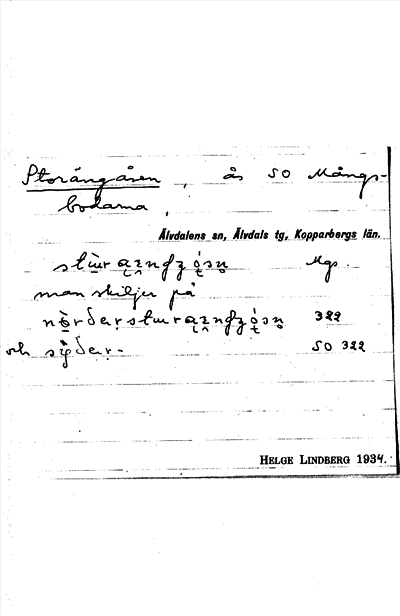 Storängåsen, ås SO Mångs-
bodarna,
Älvdalens sn, Älvdals tg, Kopparbergs län.
Mgs.
man skiljer på
322
och SO 322
HELGE LINDBERG 1934.